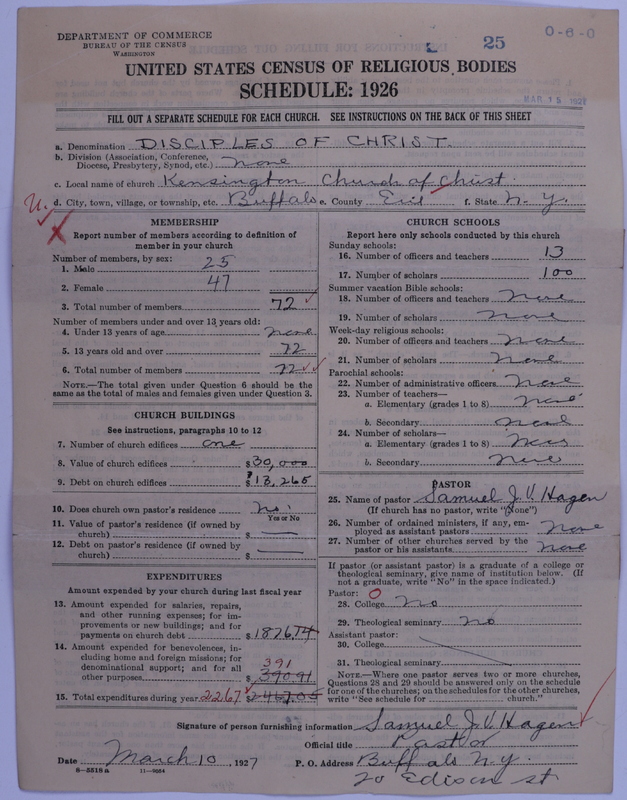 DEPARTMENT OF COMMERCE
BUREAU OF THE CENSUS
WASHINGTON
25
0-6-0
UNITED STATES CENSUS OF RELIGIOUS BODIES
SCHEDULE: 1926
MAR 15 1927
FILL OUT A SEPARATE SCHEDULE FOR EACH CHURCH. SEE INSTRUCTIONS ON THE BACK OF THIS SHEET
a. Denomination DISCIPLES OF CHRIST.
b. Division (Association, Conference, Diocese, Presbytery, Synod, etc.) None
c. Local name of church Kensington Church of Christ.
d. City, town, village, or township, etc. Buffalo e. County Erie f. State N.Y.
MEMBERSHIP
Report number of members according to definition of
member in your church
Number of members, by sex:
1. Male 25
2. Female 47
3. Total number of members 72
Number of members under and over 13 years old:
4. Under 13 years of age None
5. 13 years old and over 72
6. Total number of members 72
NOTE.—The total given under Question 6 should be the
same as the total of males and females given under Question 3.
CHURCH BUILDINGS
See instructions, paragraphs 10 to 12
7. Number of church edifices one
8. Value of church edifices $30,000
9. Debt on church edifices $13,265
10. Does church own pastor's residence No
Yes or No
11. Value of pastor's residence (if owned by
church) $ —
12. Debt on pastor's residence (if owned by
church) $ —
EXPENDITURES
Amount expended by your church during last fiscal year
13. Amount expended for salaries, repairs,
and other running expenses; for im-
provements or new buildings; and for
payments on church debt $1876.14
14. Amount expended for benevolences, in-
cluding home and foreign missions; for
denominational support; and for all
391
other purposes $ 390.91
15. Total expenditures during year 2267 $2467.05
CHURCH SCHOOLS
Report here only schools conducted by this church
Sunday schools:
16. Number of officers and teachers 13
17. Number of scholars 100
Summer vacation Bible schools:
18. Number of officers and teachers None
19. Number of scholars None
Week-day religious schools:
20. Number of officers and teachers None
21. Number of scholars None
Parochial schools:
22. Number of administrative officers None
23. Number of teachers—
a. Elementary (grades 1 to 8) None
b. Secondary None
24. Number of scholars—
a. Elementary (grades 1 to 8) None
b. Secondary None
PASTOR
25. Name of pastor Samuel J. V. Hagen
(If church has no pastor, write "None")
26. Number of ordained ministers, if any, em-
ployed as assistant pastors None
27. Number of other churches served by the
pastor or his assistants None
If pastor (or assistant pastor) is a graduate of a college or
theological seminary, give name of institution below. (If
not a graduate, write "No" in the space indicated.)
Pastor: O
28. College No
29. Theological seminary No
Assistant pastor:
30. College
31. Theological seminary
NOTE.—Where one pastor serves two or more churches,
Questions 28 and 29 should be answered only on the schedule
for one of the churches; on the schedules for the other churches,
write "See schedule for church."
Signature of person furnishing information Samuel J. V. Hagen
Official title Pastor
Date March 10, 1927 P. O. Address Buffalo N.Y.
20 Edison st
8—5518a 11—9864